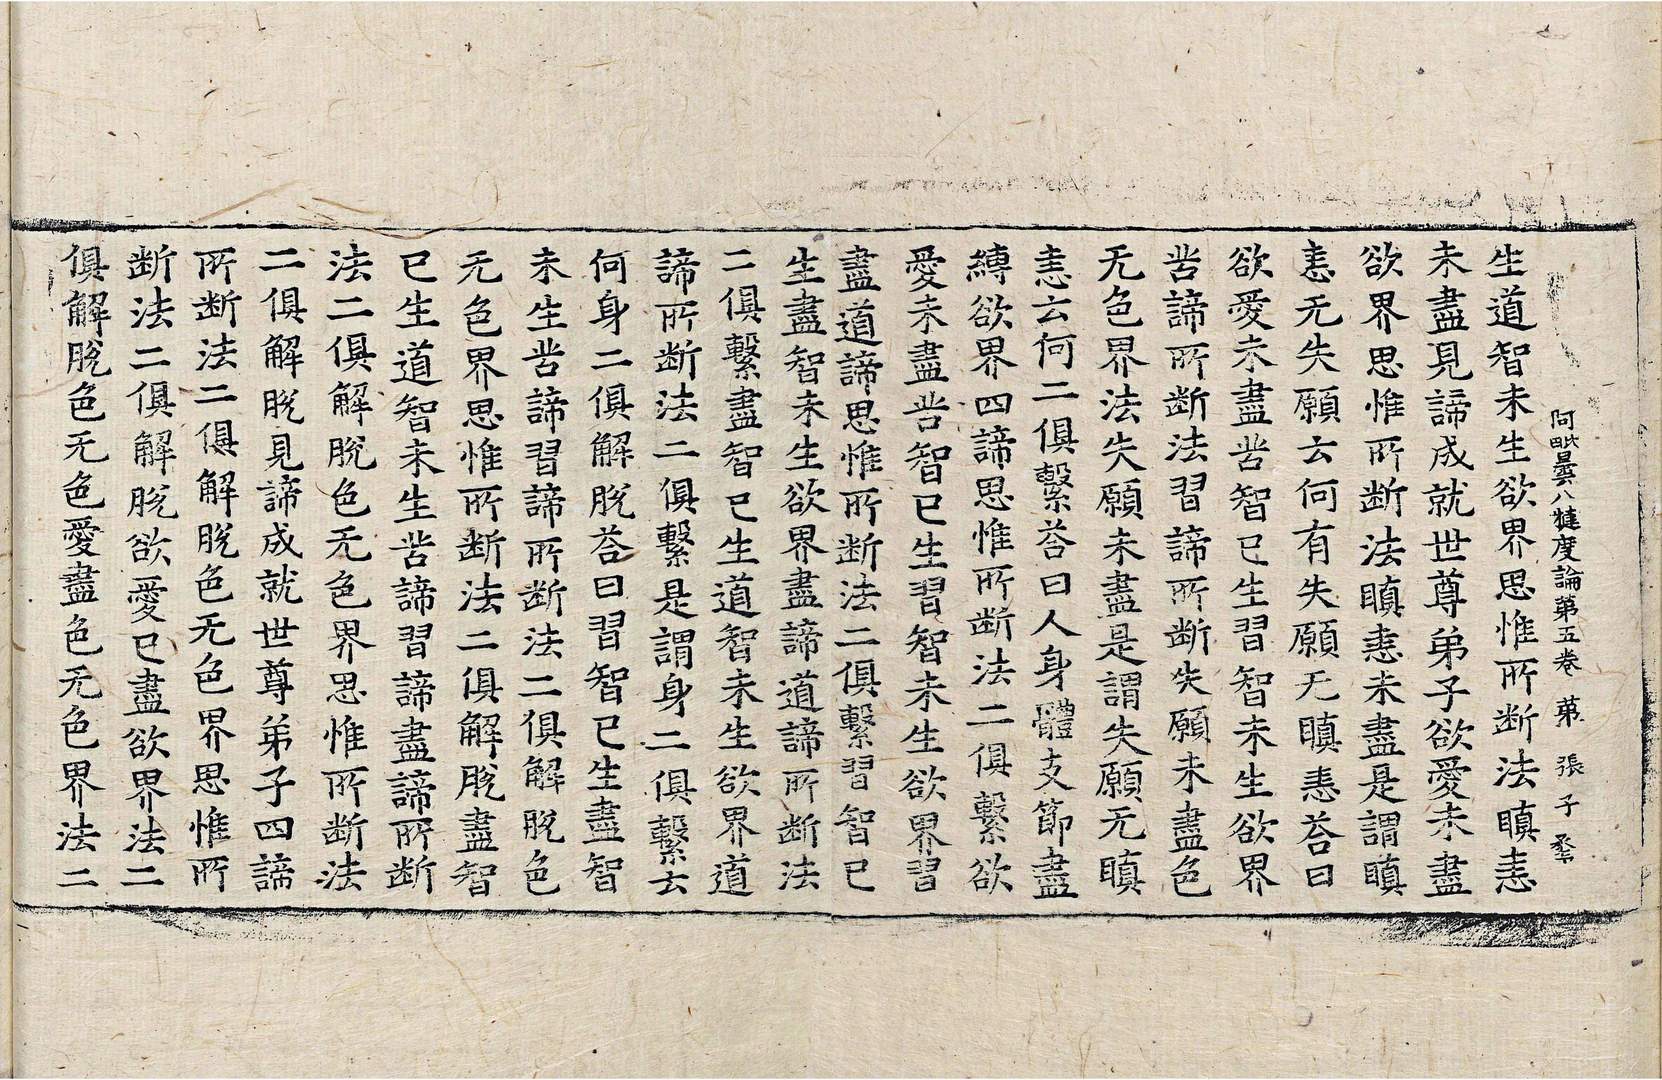 阿毗曇八犍度論第五卷 第 張 子
生道智未生欲界思惟所斷法瞋恚
未盡見諦成就世尊弟子欲愛未盡
欲界思惟所斷法瞋恚未盡是謂瞋
恚无失願云何有失願无瞋恚荅曰
欲愛未盡苦智已生習智未生欲界
苦諦所斷法習諦所斷失願未盡色
无色界法失願未盡是謂失願无瞋
恚云何二俱繫荅曰人身體支節盡
縛欲界四諦思惟所斷法二俱繫欲
愛未盡苦智已生習智未生欲界習
盡道諦思惟所斷法二俱繫習智已
生盡智未生欲界盡諦道諦所斷法
二俱繫盡智已生道智未生欲界道
諦所斷法二俱繫是謂身二俱繫云
何身二俱解脫荅曰習智已生盡智
未生苦諦習諦所斷法二俱解脫色
无色界思惟所斷法二俱解脫盡智
已生道智未生苦諦習諦盡諦所斷
法二俱解脫色无色界思惟所斷法
二俱解脫見諦成就世尊弟子四諦
所斷法二俱解脫色无色界思惟所
斷法二俱解脫欲愛已盡欲界法二
俱解脫色无色愛盡色无色界法二